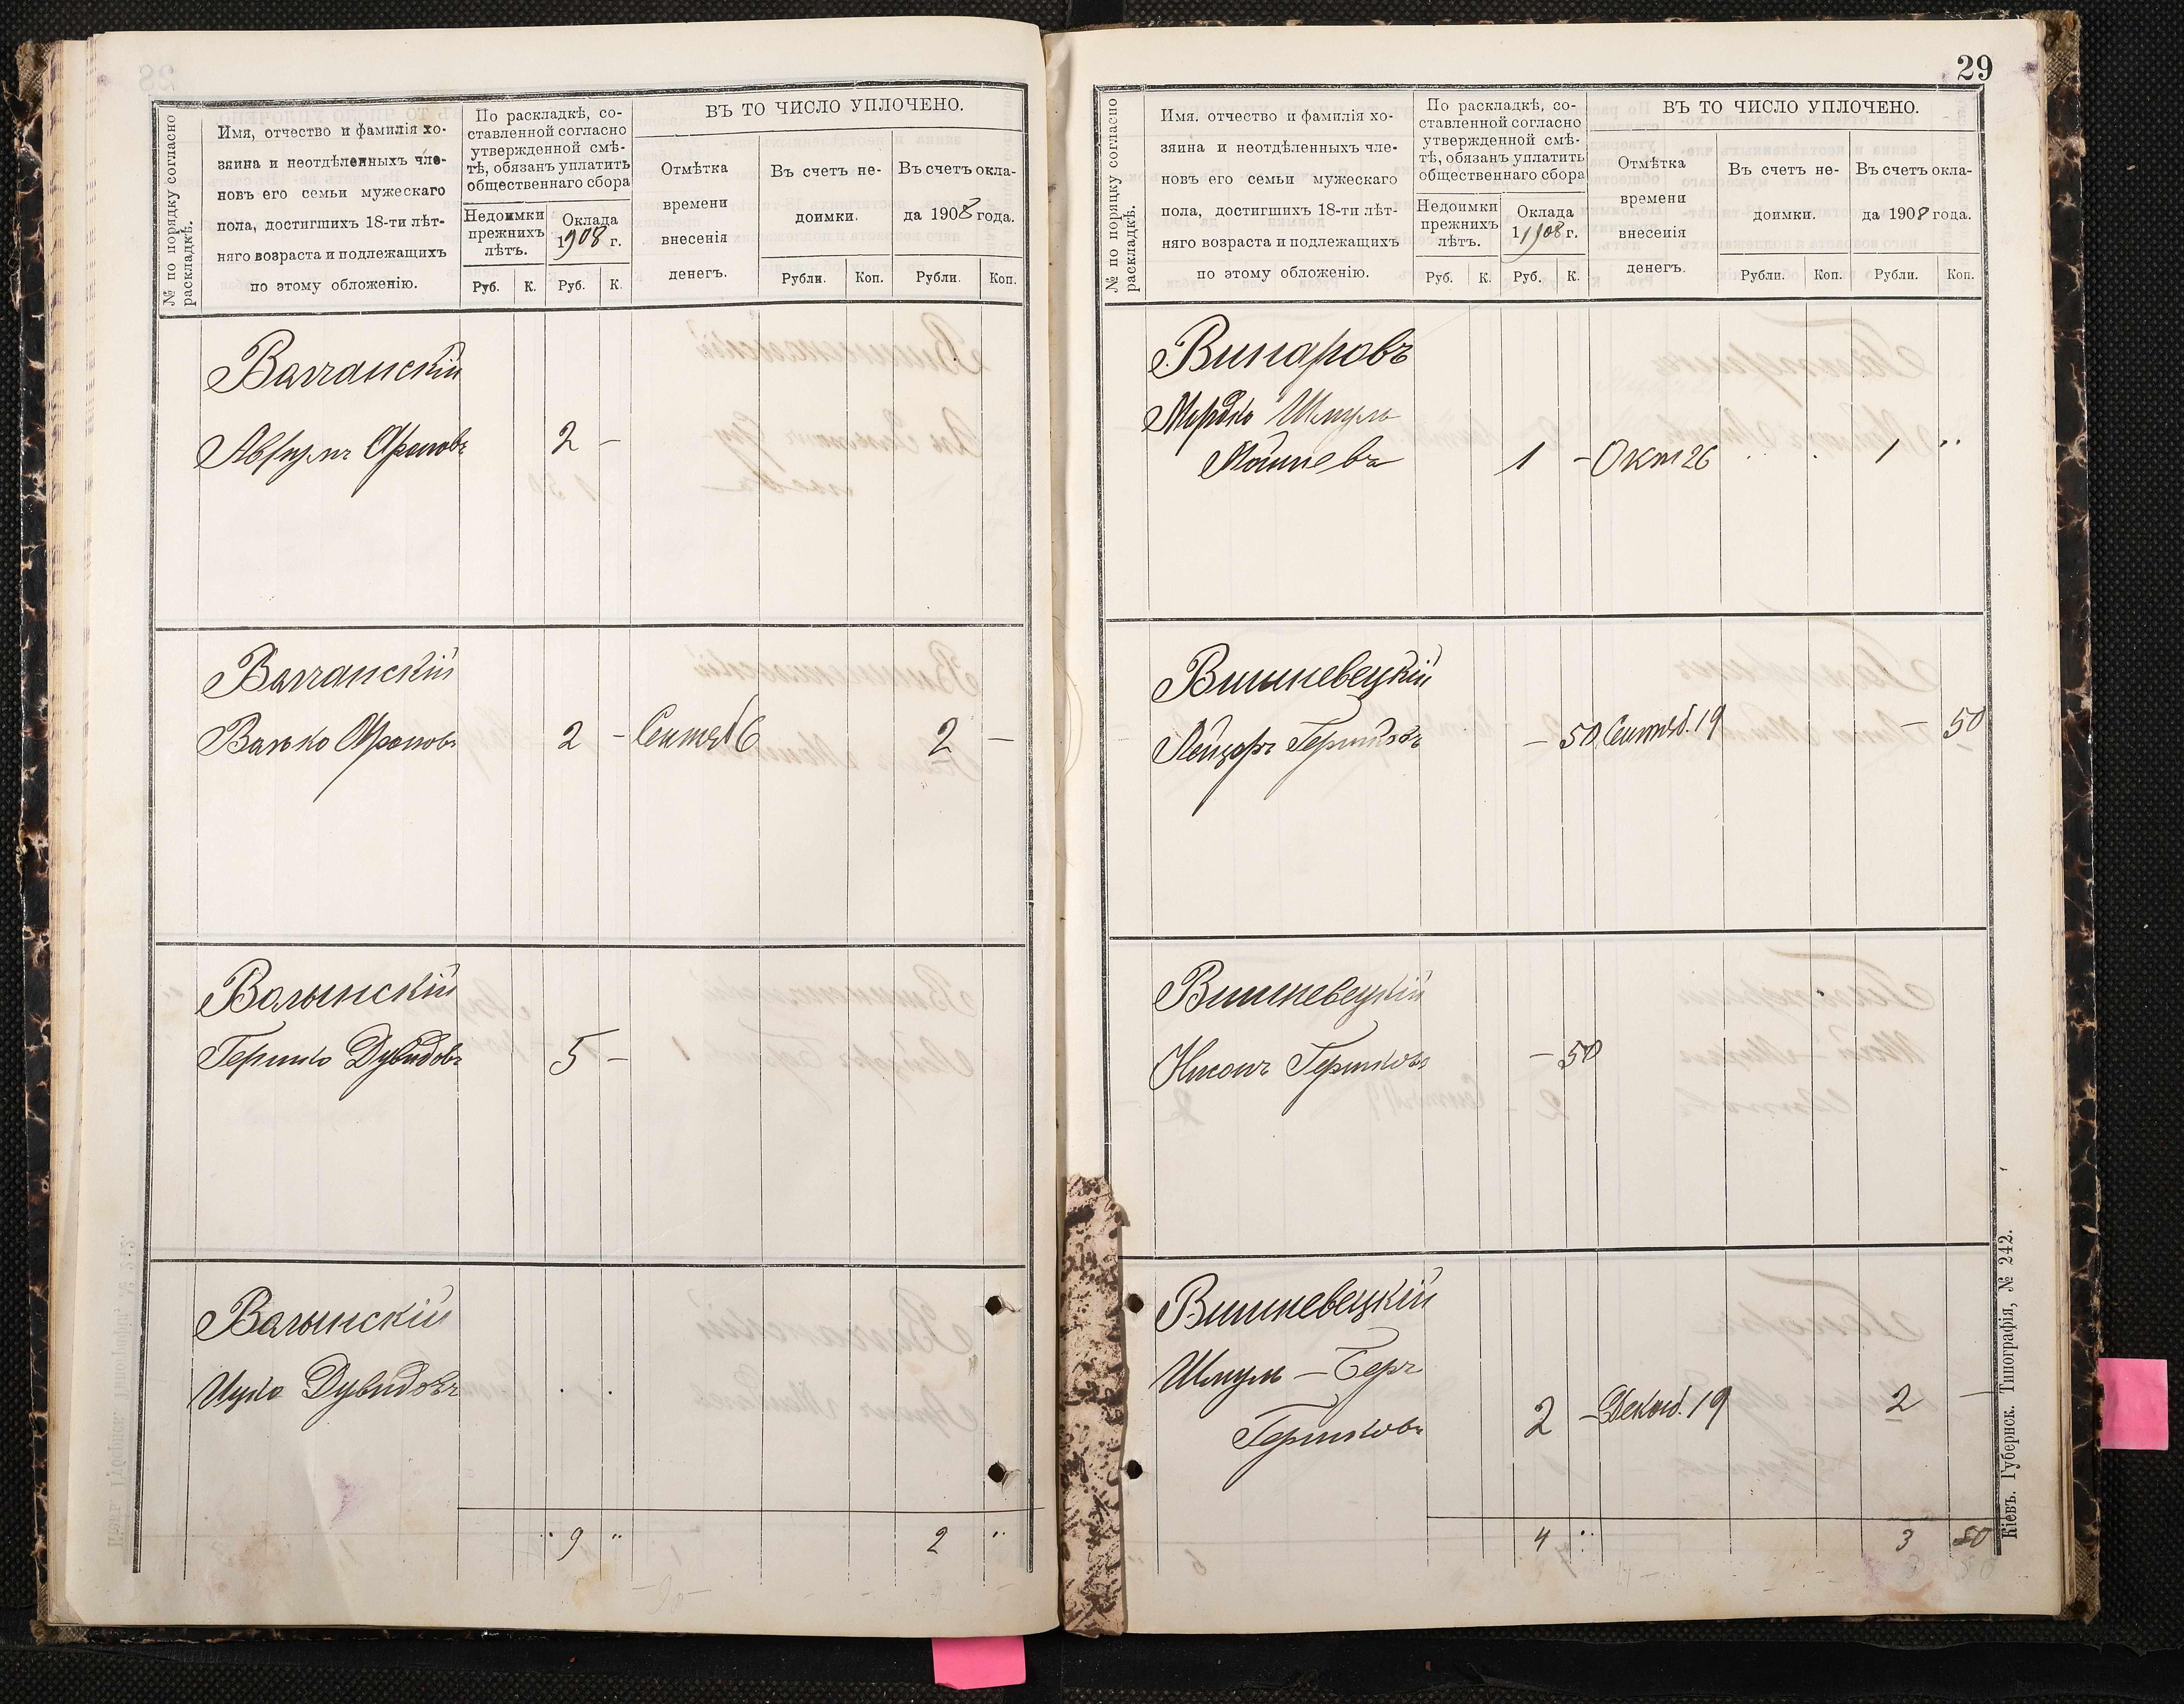 № по порядку согласно раскладкѣ.
Имя, отчество и фамилія хо-
зяина и неотдѣленныхъ чле-
новъ его семьи мужескаго
пола, достигшихъ 18-ти лѣт-
няго возраста и подлежащихъ
по этому обложенію.
По раскладкѣ, со-
ставленной согласно
утвержденной смѣ-
тѣ, обязанъ уплатить
общественнаго сбора
Недоимки
прежнихъ
лѣтъ.
Оклада
1908 г.
Руб. К. Руб. К.
ВЪ ТО ЧИСЛО УПЛОЧЕНО.
Отмѣтка
времени
внесенія
денегъ.
Въ счетъ не-
доимки.
Въ счетъ окла-
да 1908 года.
Рубли. Коп. Рубли. Коп.
2 -
2 - 2 -
Волынскій
Гершко Дувидовъ 5 -
Волынскій
Ицко Дувидовъ
9 " 2 "
29
№ по порядку согласно раскладкѣ.
Имя. отчество и фамилія хо-
зяина и неотдѣленныхъ чле-
новъ его семьи мужескаго
пола, достигшихъ 18-ти лѣт-
няго возраста и подлежащихъ
по этому обложенію.
По раскладкѣ, со-
ставленной согласно
утвержденной смѣ-
тѣ, обязанъ уплатить
общественнаго сбора
Недоимки
прежнихъ
лѣтъ.
Оклада
1908 г.
Руб. К. Руб. К.
ВЪ ТО ЧИСЛО УПЛОЧЕНО.
Отмѣтка
времени
внесенія
денегъ.
Въ счетъ не-
доимки.
Въ счетъ окла-
да 1908 года.
Рубли. Коп. Рубли. Коп.
Винаровъ
Мордко Шмуль
Мошневъ 1 - Окт 26 1 "
Вишневецкій
Лейзоръ Гершковъ - 50 Сентяб. 19 - 50
Вишневецкій
Нисонъ Гершковъ - 50
Вишневецкій
Шмуль - Беръ
Гершковъ 2 - Декаб. 19 2 -
4 " 3 50
Кіевъ. Губернск. Типографія, № 242.